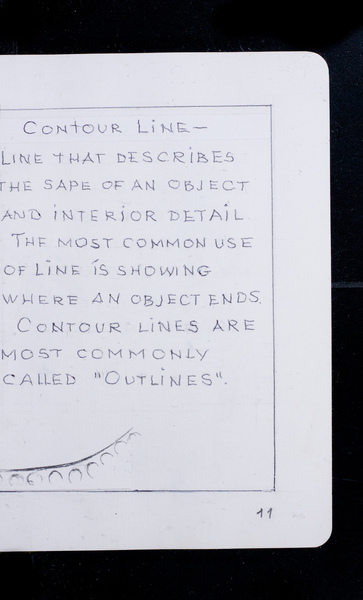 CONTOUR LINE—
LINE THAT DESCRIBES
THE SAPE OF AN OBJECT
AND INTERIOR DETAIL
THE MOST COMMON USE
OF LINE IS SHOWING
WHERE AN OBJECT ENDS.
CONTOUR LINES ARE
MOST COMMONLY
CALLED "OUTLINES".
11